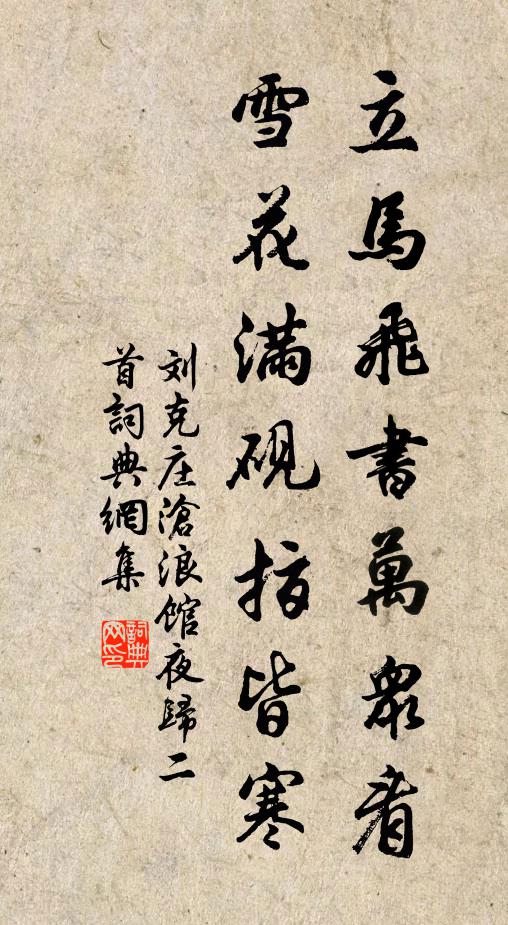 立馬飛書萬衆看
雪花滿硯指皆寒
刘克庄滄浪館夜歸二
首詞典網集
詞典
网印